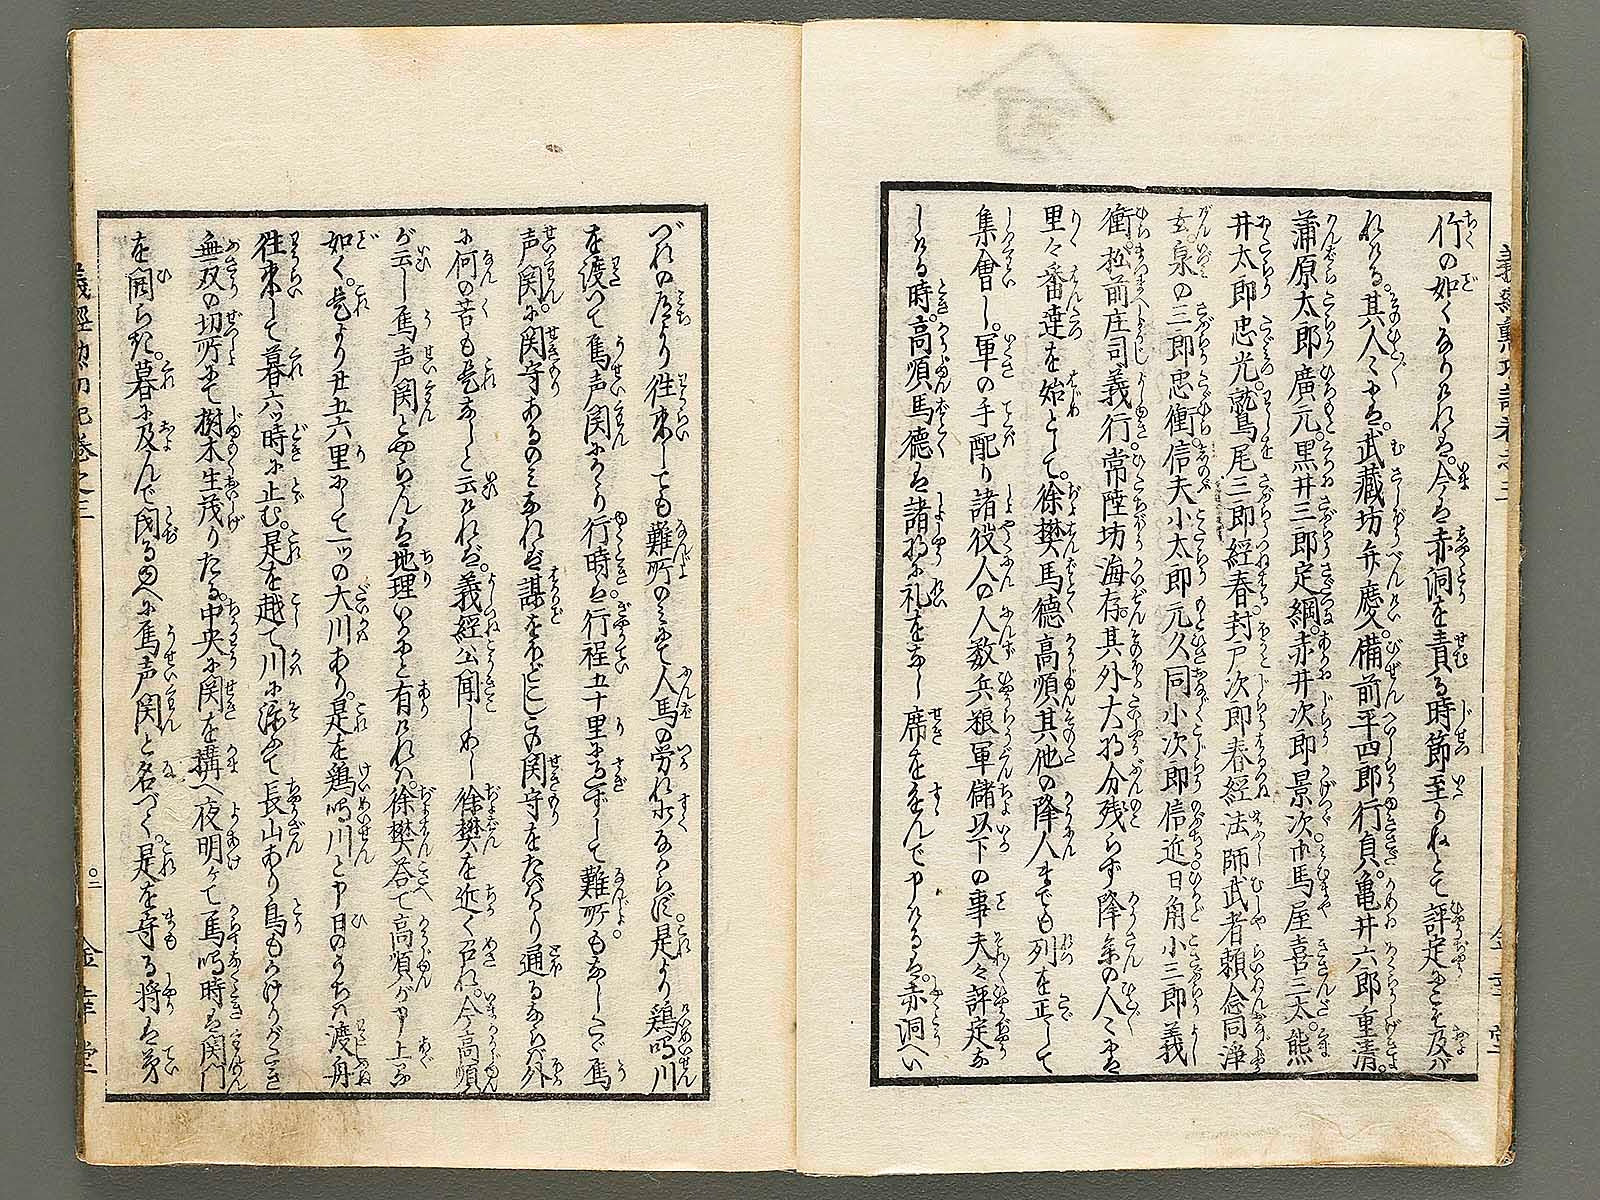 竹の如くなりければ。今は赤洞を責る時節至りぬとて評定にこそ及び
ける。其人々には。武藏坊弁慶。備前平四郎行貞。亀井六郎重清。
蒲原太郎廣元。黒井三郎定綱。赤井次郎景次。御馬屋喜三太。熊
井太郎忠光。鷲尾三郎経春。封戸次郎春経。法師武者頼念同浄
玄泉の三郎忠衝。信夫小太郎元久同小次郎信近日角小三郎義
衝。松前庄司義行。常陸坊海存。其外大将分残らず降参の人々には
里々番達を始として。徐樊馬徳高順其他の降人までも列を正して
集會し。軍の手配り諸役人の人数兵粮軍儲以下の事夫々評定な
しける時。高順馬徳は諸将に礼をなし席をすゝんで申けるは。赤洞へい
づれの道より往来しても難所のみにて人馬の労れ少なからず。是より鶏鳴川
を渡つて馬声関にかゝり行時は。行程五十里にすぎずして難所もなしたゞ馬
声関に。関守あるのみなれば謀をほどこし関守をたばかり通るならば外
に何の苦も是なしと云ければ。義経公聞しめし徐樊を近く召れ。今高順
が云し馬声関とやらんは地理いかにと有ければ。徐樊答て高順が申上る
如く。是より廿五六里にして一ッの大川あり。是を鶏鳴川と申日のうちは渡舟
往来して暮六ッ時に止む。是を越て川に添ふて長山あり鳥もかけりがたき
無双の切所にて樹木生茂りたる。中央に関を搆へ夜明ケて馬鳴時は関門
を開らき。暮に及んで閉るゆへに馬声関と名づく。是を守る将は弟
義經勲功記巻之三
金幸堂